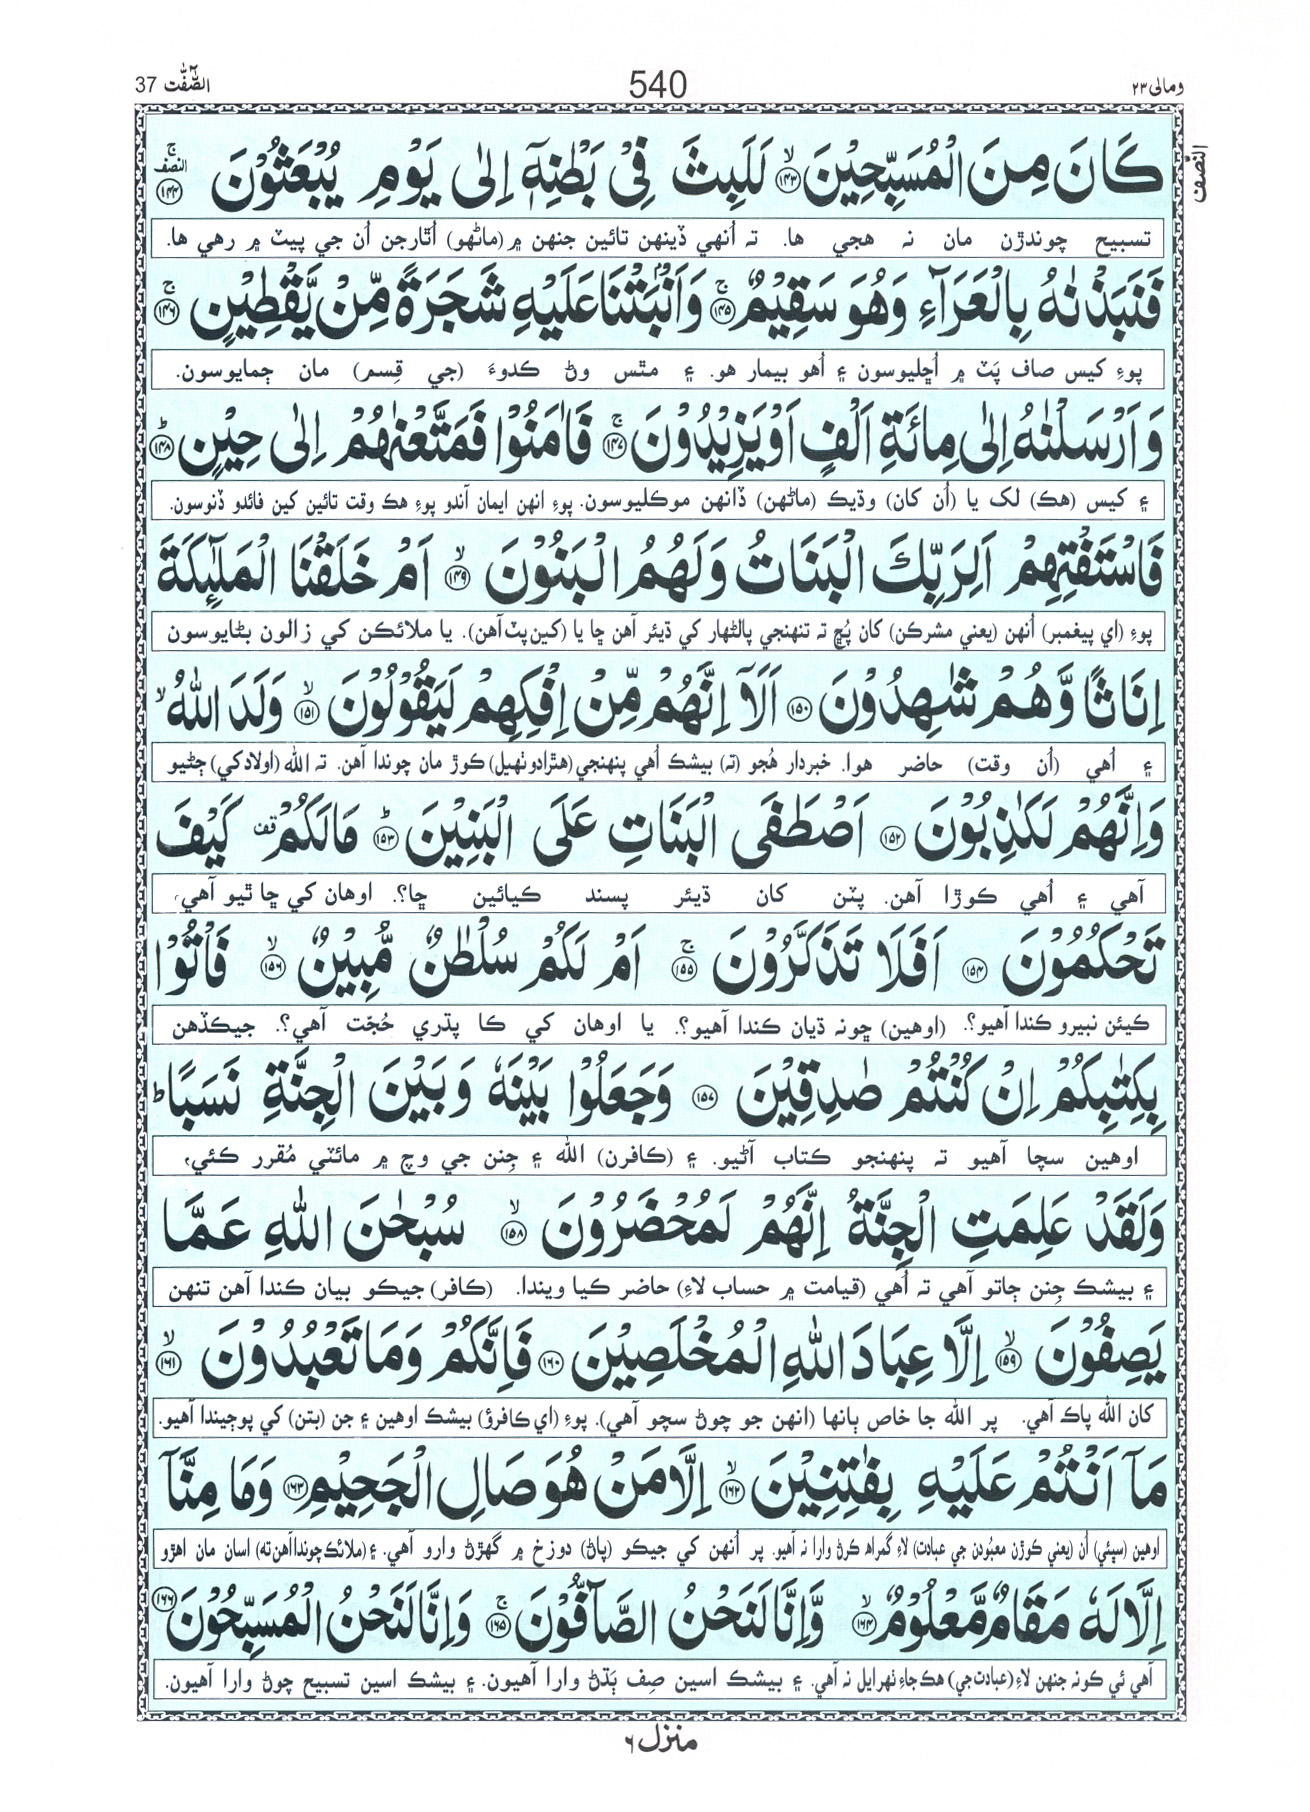 الصّٰٓفّٰت 37
540
ومالی ٢٣
النصف
كَانَ مِنَ الْمُسَبِّحِيْنَ ۙ﴿١٤٣﴾ لَلَبِثَ فِيْ بَطْنِهٖٓ اِلٰى يَوْمِ يُبْعَثُوْنَ ۚ﴿١٤٤﴾ النصف
تسبيح چوندڙن مان نہ هجي ها. تہ اُنهي ڏينهن تائين جنهن ۾ (ماڻهو) اُٿارجن اُن جي پيٽ ۾ رهي ها.
فَنَبَذْنٰهُ بِالْعَرَآءِ وَهُوَ سَقِيْمٌ ۚ﴿١٤٥﴾ وَاَنْۢبَتْنَا عَلَيْهِ شَجَرَةً مِّنْ يَّقْطِيْنٍ ۚ﴿١٤٦﴾
پوءِ کيس صاف پَٽ ۾ اُڇليوسون ۽ اُهو بيمار هو. ۽ مٿس وڻ ڪدوءَ (جي قِسم) مان ڄمايوسون.
وَاَرْسَلْنٰهُ اِلٰى مِائَةِ اَلْفٍ اَوْ يَزِيْدُوْنَ ۚ﴿١٤٧﴾ فَاٰمَنُوْا فَمَتَّعْنٰهُمْ اِلٰى حِيْنٍ ؕ﴿١٤٨﴾
۽ کيس (هڪ) لک يا (اُن کان) وڌيڪ (ماڻهن) ڏانهن موڪليوسون. پوءِ انهن ايمان آندو پوءِ هڪ وقت تائين کين فائدو ڏنوسون.
فَاسْتَفْتِهِمْ اَلِرَبِّكَ الْبَنَاتُ وَلَهُمُ الْبَنُوْنَ ۙ﴿١٤٩﴾ اَمْ خَلَقْنَا الْمَلٰٓئِكَةَ
پوءِ (اي پيغمبر) اُنهن (يعني مشرڪن) کان پُڇ تہ تنهنجي پالڻهار کي ڌيئر آهن ڇا يا (کين پٽ آهن). يا ملائڪن کي زالون بڻايوسون
اِنَاثًا وَّهُمْ شٰهِدُوْنَ ﴿١٥٠﴾ اَلَآ اِنَّهُمْ مِّنْ اِفْكِهِمْ لَيَقُوْلُوْنَ ۙ﴿١٥١﴾ وَلَدَ اللّٰهُ ۙ
۽ اُهي (اُن وقت) حاضر هوا. خبردار هُجو (تہ) بيشڪ اُهي پنهنجي (هٿرادو ٺهيل) ڪوڙ مان چوندا آهن. تہ الله (اولاد کي) ڄڻيو
وَاِنَّهُمْ لَكٰذِبُوْنَ ﴿١٥٢﴾ اَصْطَفَى الْبَنَاتِ عَلَى الْبَنِيْنَ ؕ﴿١٥٣﴾ مَا لَكُمْ قف كَيْفَ
آهي ۽ اُهي ڪوڙا آهن. پٽن کان ڌيئر پسند ڪيائين ڇا؟. اوهان کي ڇا ٿيو آهي،
تَحْكُمُوْنَ ﴿١٥٤﴾ اَفَلَا تَذَكَّرُوْنَ ۚ﴿١٥٥﴾ اَمْ لَكُمْ سُلْطٰنٌ مُّبِيْنٌ ۙ﴿١٥٦﴾ فَاْتُوْا
ڪيئن نبيرو ڪندا آهيو؟. (اوهين) ڇونہ ڌيان ڪندا آهيو؟. يا اوهان کي ڪا پڌري حُجّت آهي؟. جيڪڏهن
بِكِتٰبِكُمْ اِنْ كُنْتُمْ صٰدِقِيْنَ ﴿١٥٧﴾ وَجَعَلُوْا بَيْنَهٗ وَبَيْنَ الْجِنَّةِ نَسَبًا ؕ
اوهين سچا آهيو تہ پنهنجو ڪتاب آڻيو. ۽ (ڪافرن) الله ۽ جِنن جي وچ ۾ مائٽي مُقرر ڪئي،
وَلَقَدْ عَلِمَتِ الْجِنَّةُ اِنَّهُمْ لَمُحْضَرُوْنَ ۙ﴿١٥٨﴾ سُبْحٰنَ اللّٰهِ عَمَّا
۽ بيشڪ جِنن ڄاتو آهي تہ اُهي (قيامت ۾ حساب لاءِ) حاضر ڪيا ويندا. (ڪافر) جيڪو بيان ڪندا آهن تنهن
يَصِفُوْنَ ۙ﴿١٥٩﴾ اِلَّا عِبَادَ اللّٰهِ الْمُخْلَصِيْنَ ﴿١٦٠﴾ فَاِنَّكُمْ وَمَا تَعْبُدُوْنَ ۙ﴿١٦١﴾
کان الله پاڪ آهي. پر الله جا خاص ٻانها (انهن جو چوڻ سچو آهي). پوءِ (اي ڪافرؤ) بيشڪ اوهين ۽ جن (بتن) کي پوڄيندا آهيو.
مَآ اَنْتُمْ عَلَيْهِ بِفٰتِنِيْنَ ۙ﴿١٦٢﴾ اِلَّا مَنْ هُوَ صَالِ الْجَحِيْمِ ﴿١٦٣﴾ وَمَا مِنَّآ
اوهين (سڀئي) اُن (يعني ڪوڙن معبُودن جي عبادت) لاءِ گمراھ ڪرڻ وارا نہ آهيو. پر اُنهن کي جيڪو (پاڻ) دوزخ ۾ گهڙڻ وارو آهي. ۽ (ملائڪ چوندا آهن تہ) اسان مان اهڙو
اِلَّا لَهٗ مَقَامٌ مَّعْلُوْمٌ ۙ﴿١٦٤﴾ وَّاِنَّا لَنَحْنُ الصَّآفُّوْنَ ۚ﴿١٦٥﴾ وَاِنَّا لَنَحْنُ الْمُسَبِّحُوْنَ ﴿١٦٦﴾
آهي ئي ڪونہ جنهن لاءِ (عبادت جي) هڪ جاءِ ٺهرايل نہ آهي. ۽ بيشڪ اسين صِف ٻَڌڻ وارا آهيون. ۽ بيشڪ اسين تسبيح چوڻ وارا آهيون.
منزل ٦